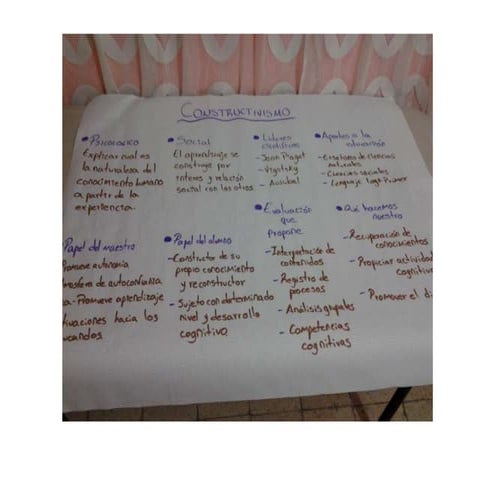 CONSTRUCTIVISMO
• Psicologico
Explicar cual es
la naturaleza del
conocimiento humano
a partir de la
experiencia.
• Social
El aprendizaje se
construye por
interes y relación
social con los otros
• Lideres
cientificos
- Jean Piaget
- Vigotsky
- Ausubel
• Aportes a la
educación
- Enseñanza de ciencias
naturales
- Ciencias sociales
- Lenguaje Logo-Primer
Papel del maestro
Promueve autonomia
de autoconfianza
- Promueve aprendizaje
hacia los
• Papel del alumno
- Constructor de su
propio conocimiento
y reconstructor
- Sujeto con determinado
nivel y desarrollo
cognitivo
• Evaluación
que
propone
- Interpretación de
contenidos
- Registro de
procesos
- Análisis grupales
- Competencias
cognitivas
• Qué hacemos
nuestro
- Recuperación de
conocimientos
- Propiciar actividad
cognitiva
- Promover el